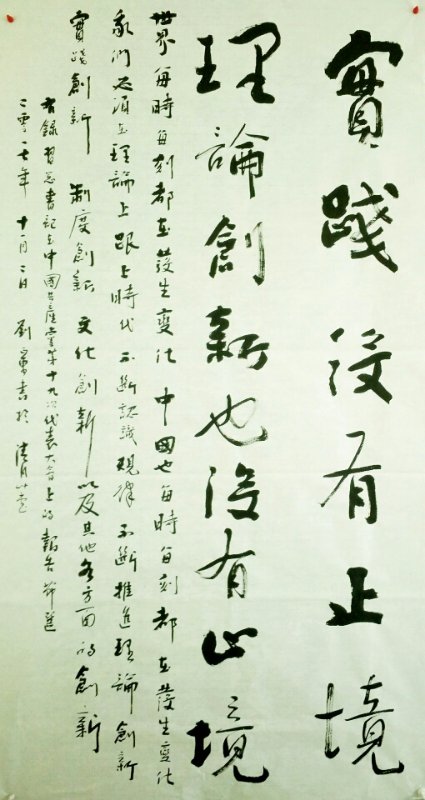 實踐沒有止境
理論創新也沒有止境
世界每時每刻都在發生變化 中國也每時每刻都在發生變化
我們必須在理論上跟上時代 不斷認識規律 不斷推進理論創新
實踐創新 制度創新 文化創新 以及其他各方面的創新
右錄習總書記在中國共產黨第十九次代表大會上的報告節選
二零一七年十一月二日 劉勇書於